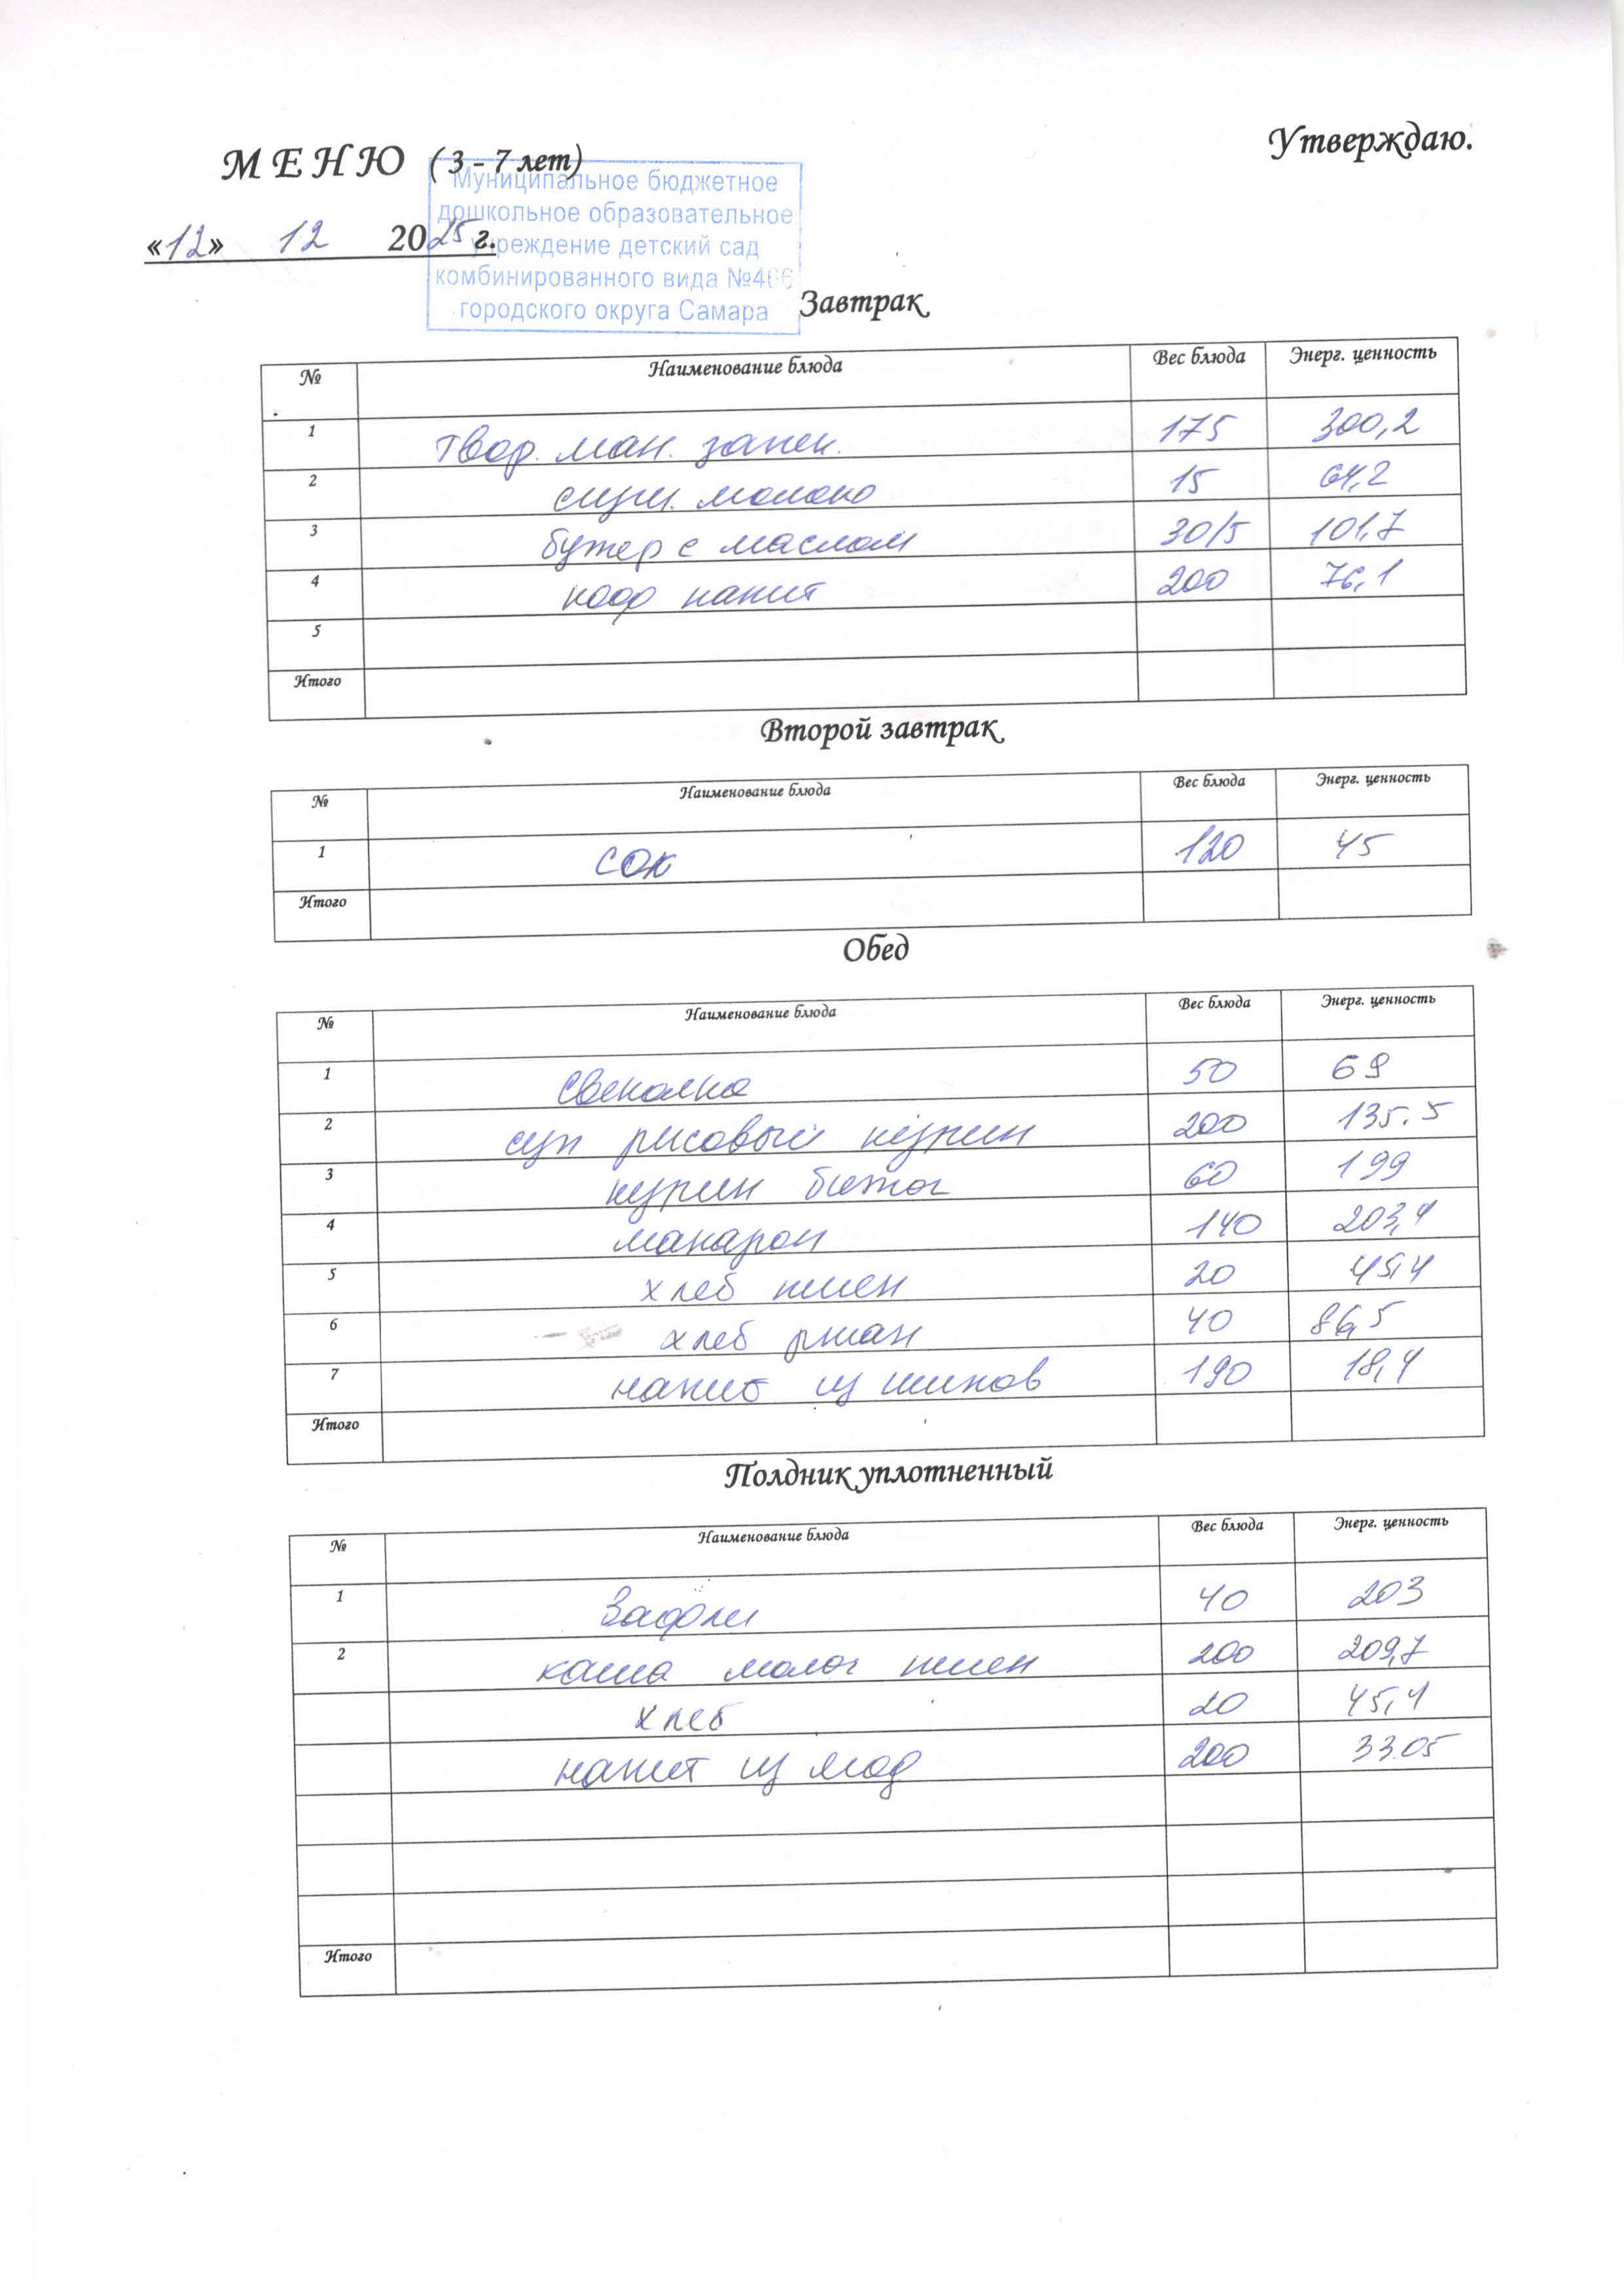 Утверждаю.
М Е Н Ю ( 3 - 7 лет)
Муниципальное бюджетное
дошкольное образовательное
учреждение детский сад
комбинированного вида №466
городского округа Самара
«12» 12 2025 г.
Завтрак
№ Наименование блюда Вес блюда Энерг. ценность
1 твор. ман. запек. 175 300,2
2 сгущ. молоко 15 64,2
3 бутер с маслом 30/5 101,7
4 кофр напит 200 76,1
5
Итого
Второй завтрак
№ Наименование блюда Вес блюда Энерг. ценность
1 сок 120 45
Итого
Обед
№ Наименование блюда Вес блюда Энерг. ценность
1 свеколка 50 69
2 суп рисовый курин 200 135.5
3 курин биточ 60 199
4 макарон 140 203,4
5 хлеб пшен 20 45,4
6 хлеб ржан 40 86,5
7 напит из шипов 190 18,4
Итого
Полдник уплотненный
№ Наименование блюда Вес блюда Энерг. ценность
1 Вафли 40 203
2 каша молоч пшен 200 209,7
хлеб 20 45,4
напит из ягод 200 33.05
Итого